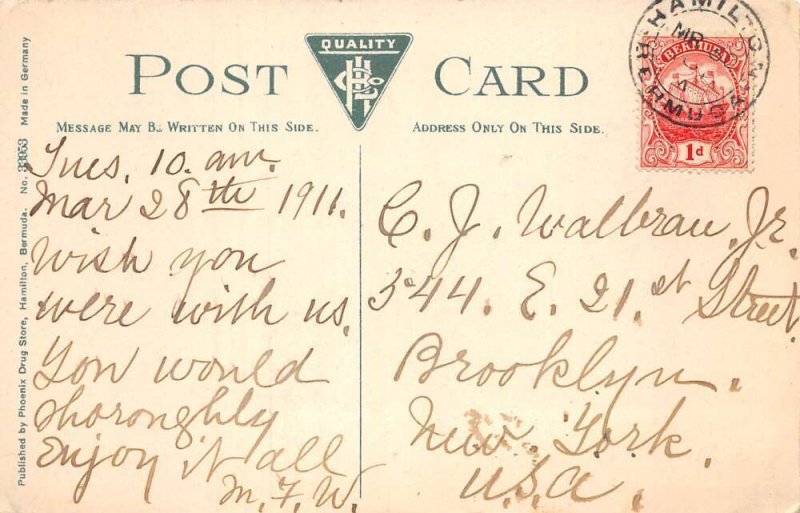 POST CARD
QUALITY
MESSAGE MAY BE WRITTEN ON THIS SIDE.
ADDRESS ONLY ON THIS SIDE.
HAMILTON
BERMUDA
BERMUDA
1d
Tues. 10. am.
Mar 28th 1911.
Wish you
were with us.
You would
thoroughly
Enjoy it all
M.F.W.
C. J. Walbrau, Jr.
344. E. 21.st Street
Brooklyn.
New. York.
U.S.A.
Published by Phoenix Drug Store, Hamilton, Bermuda. No. Made in Germany